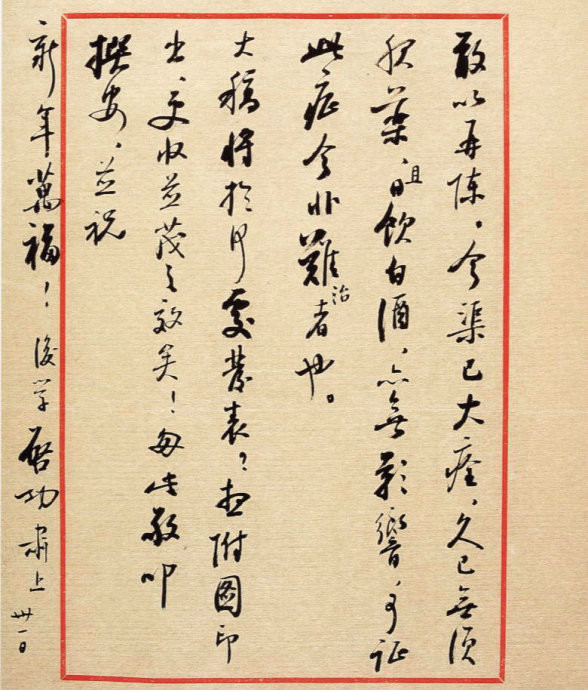 敢以再陈，今渠已大痊，久已无须
服药，且日饮白酒，亦无影响，可证
此症今非难治者也。
大稿将于何处发表？想附图印
出，更收并茂之效矣！匆此敬叩
撰安，并祝
新年萬福！後学启功肃上 卅一日